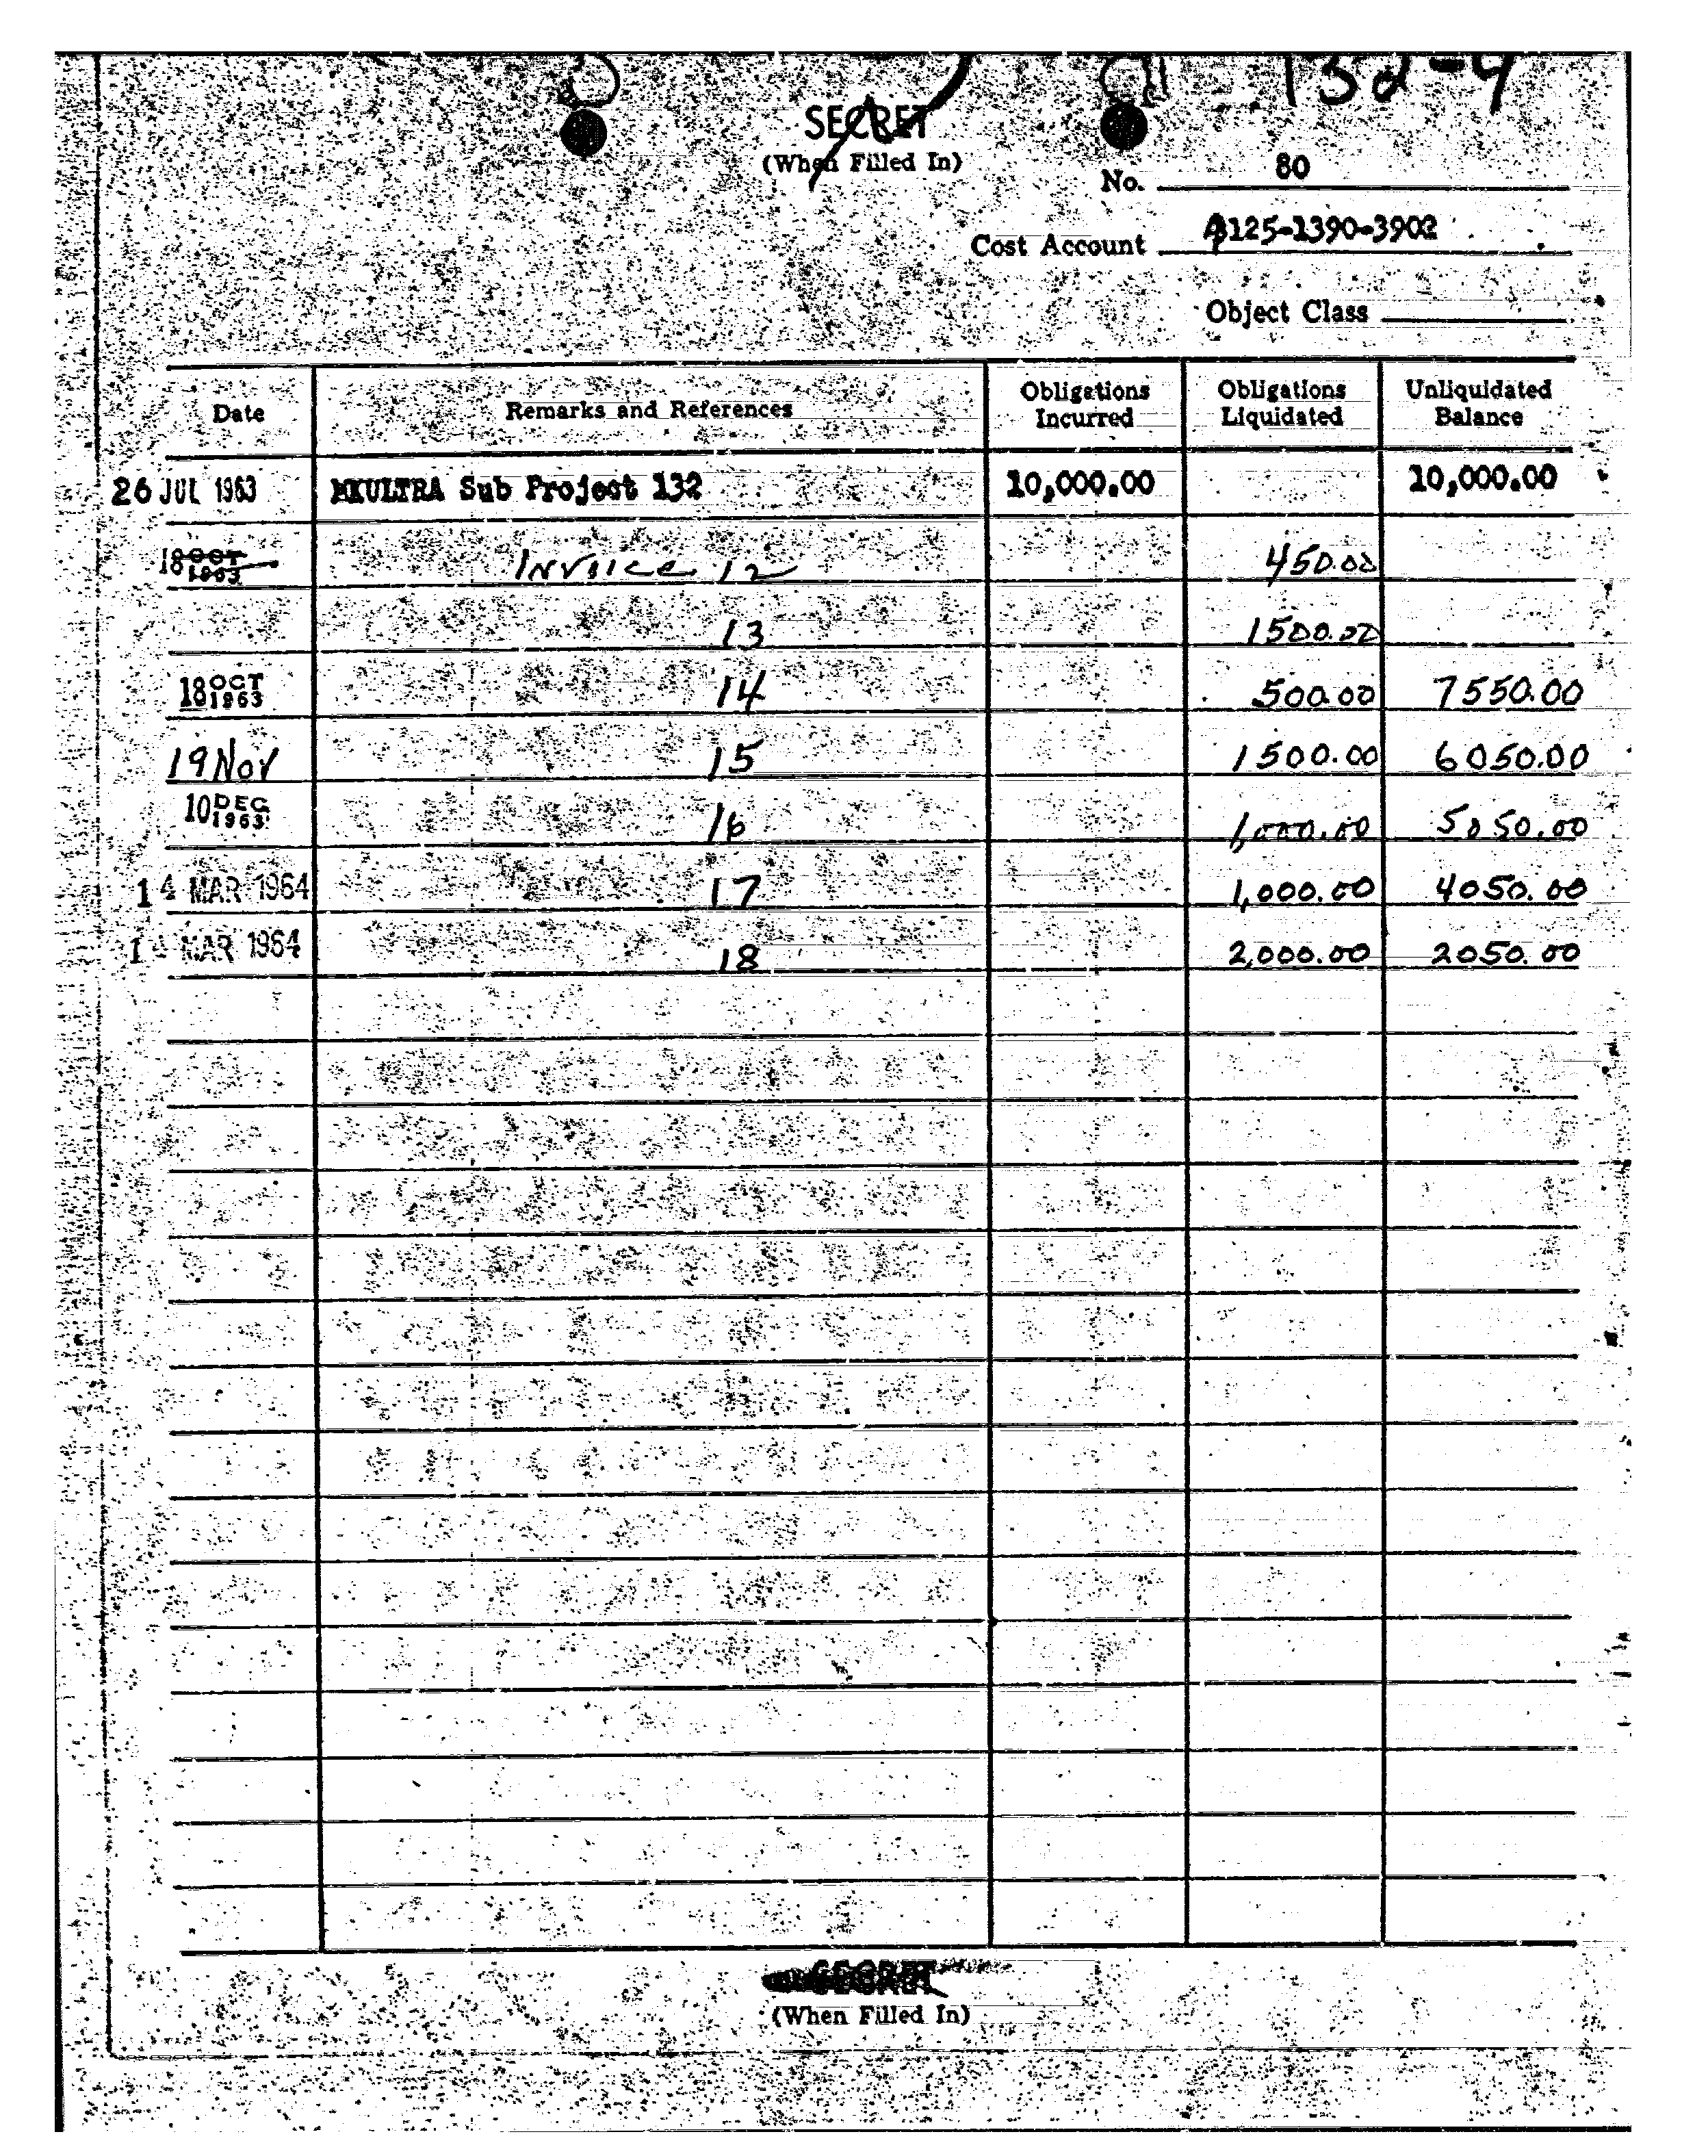 132-4
SECRET
(When Filled In)
No. 80
Cost Account 4125-1390-3902
Object Class
Date Remarks and References Obligations Incurred Obligations Liquidated Unliquidated Balance
26 JUL 1963 MKULTRA Sub Project 132 10,000.00 10,000.00
18 OCT 1963 Invoice 12 450.00
13 1500.00
18 OCT 1963 14 500.00 7550.00
19 Nov 15 1500.00 6050.00
10 DEC 1963 16 1,000.00 5050.00
1 4 MAR 1964 17 1,000.00 4050.00
1 4 MAR 1964 18 2,000.00 2050.00
SECRET
(When Filled In)